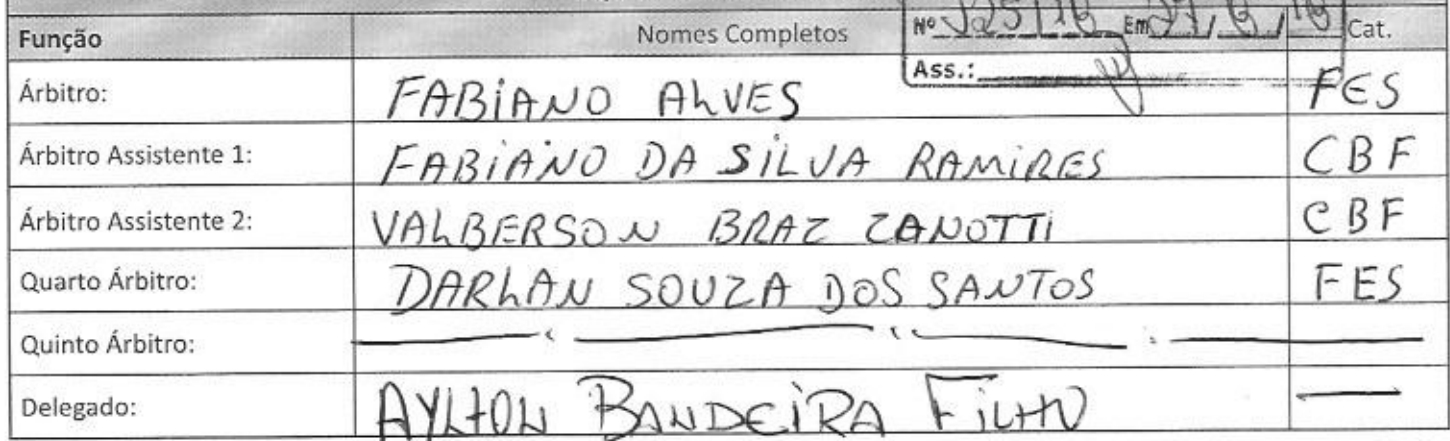 Nº 525/16 Em 27/6/16
Função Nomes Completos Cat.
Ass.:
Árbitro: FABIANO ALVES FES
Árbitro Assistente 1: FABIANO DA SILVA RAMIRES CBF
Árbitro Assistente 2: VALBERSON BRAZ ZANOTTI CBF
Quarto Árbitro: DARLAN SOUZA DOS SANTOS FES
Quinto Árbitro:
Delegado: AYLTON BANDEIRA FILHO